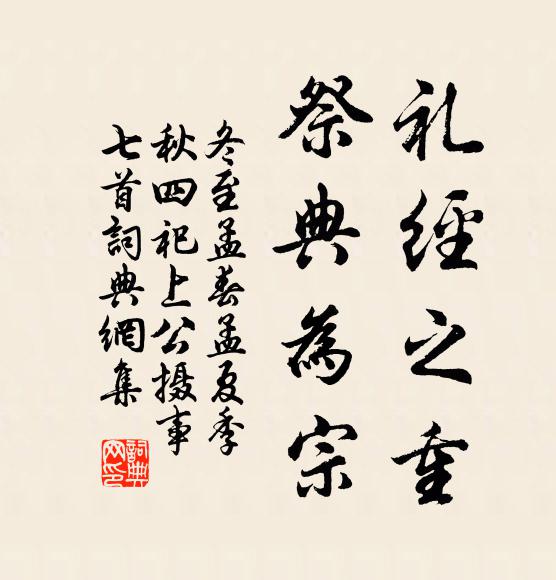 礼經之重
祭典為宗
冬至孟春孟夏季
秋四祀上公摄事
七首詞典網集
詞典
网印